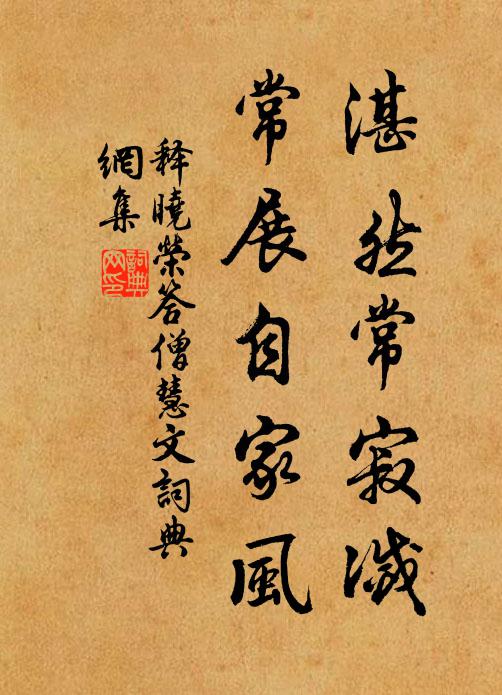 湛然常寂滅
常展自家風
释曉荣答僧慧文詞典
網集
詞典网印